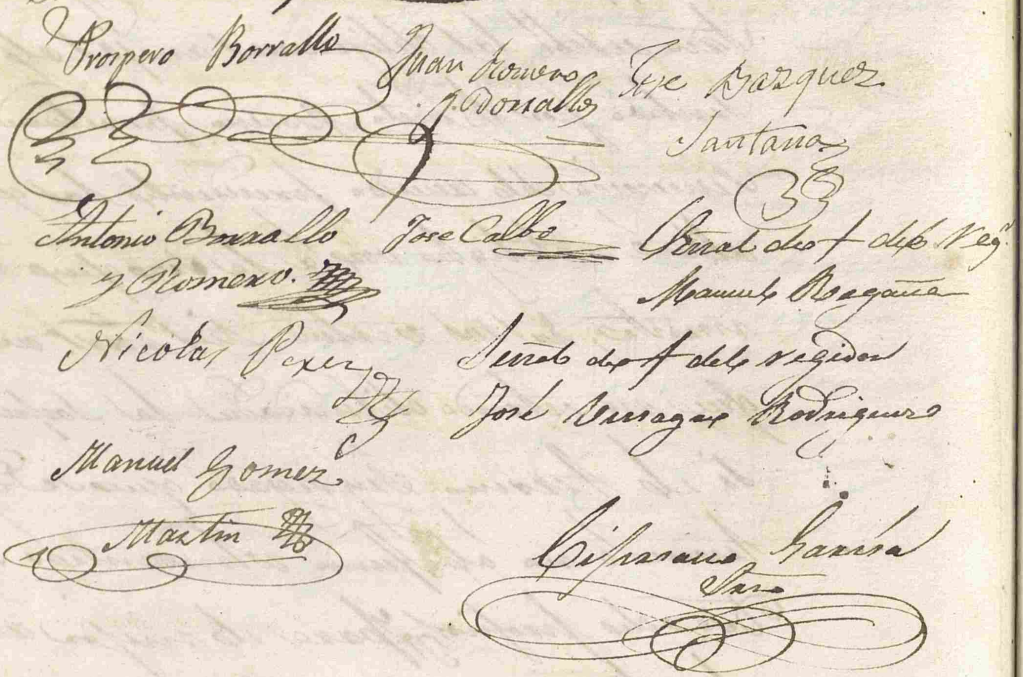 Prospero Borrallo
Juan Romero
y Borrallo
Jose Bazquez
Santana
Antonio Borrallo
y Romero.
Jose Calbo
Señal de † del Regr.
Manuel Ragaña
Nicolas Perez
Señal de † del regidor
José Rodriguez
Manuel Gomez
Martin
Cipriano Garcia
Srio